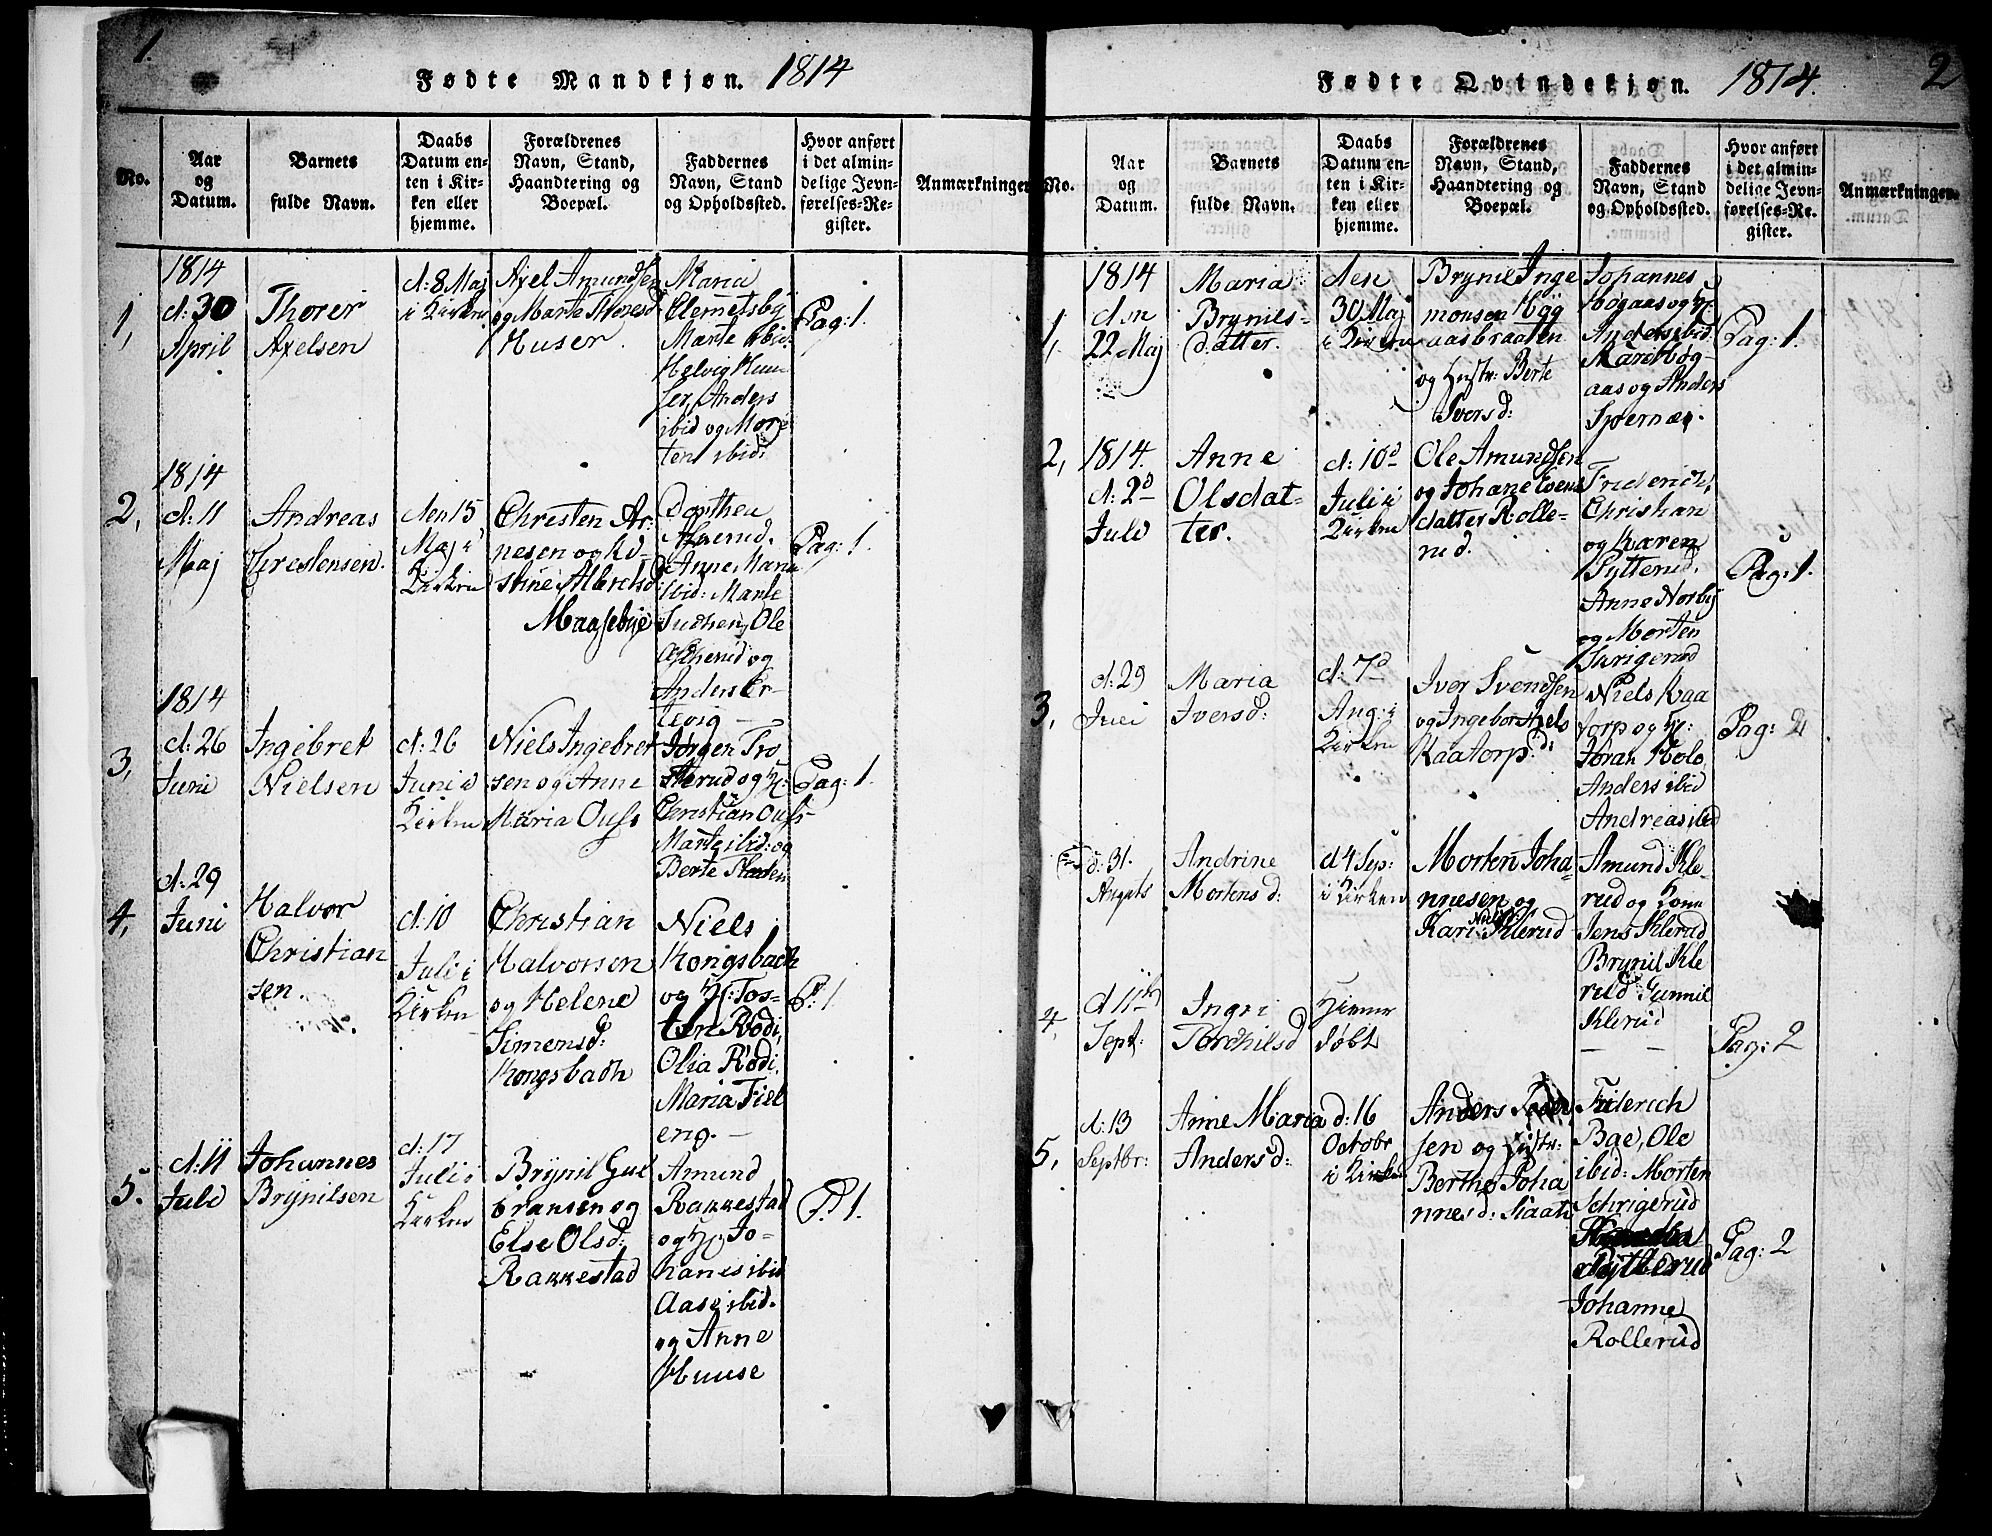 1.
Fødte Mandkjøn. 1814
No.
Aar og Datum.
Barnets fulde Navn.
Daabs Datum enten i Kirken eller hjemme.
Forældrenes Navn, Stand, Haandtering og Boepæl.
Faddernes Navn, Stand og Opholdssted.
Hvor anført i det almindelige Jevnførelses-Register.
Anmærkninger.
1,
1814
d: 30
April
Thorer
Axelsen
d: 8 Maj
i Kirken
Axel Amundsen
og Marte Thoresd
Huser
Maria
Clemetsby
Marte ibid:
Helvig Huu
ser, Anders
ibid og Mor
ten ibid:
Pag: 1.
2,
1814
d: 11
Maj
Andreas
Christensen.
den 15
Maj i
Kirken
Christen Ar-
nesen og Ki-
stine Albretsd
Maasebye
Dorthea
Anne Maria
ibid: Marte
Ole
og
Anders
Pag: 1.
3,
1814
d: 26
Juni
Ingebret
Nielsen
d: 26
Juni i
Kirken
Niels Ingebret
sen og Anne
Maria Ouss
Jørgen Tro
sterud og H:
Christian Ouss
Marte ibid: og
Berte
Pag: 1.
4,
d: 29
Juni
Halvor
Christian
sen.
d: 10
Juli i
Kirken
Christian
Halvorsen
og Helene
Simensd:
Kongsbach
Niels
Kongsbach
og H: Tos-
ten Rødi,
Olia Rødi,
Maria Fiel
eng.
P: 1
5.
d: 11
Juli
Johannes
Brynilsen
d: 17
Juli i
Kirken
Brynil Gul
bransen og
Else Olsd:
Rakkestad
Amund
Rakkestad
og H. Jo-
hanes ibid
Aase ibid.
og Anne
Huuse
P. 1.
2
Fødte Qvindekjøn. 1814.
No.
Aar og Datum.
Barnets fulde Navn.
Daabs Datum enten i Kirken eller hjemme.
Forældrenes Navn, Stand, Haandtering og Boepæl.
Faddernes Navn, Stand og Opholdssted.
Hvor anført i det almindelige Jevnførelses-Register.
Anmærkninger.
1,
1814
den
22 Maj
Maria
Brynils-
datter.
den
30 Maj
i Kirken
Brynil Inge
monsen Høg
aasbraaten
og Hustr: Berte
Iversd:
Johannes
Høgaas og H.
Anders ibid:
Mari Høg-
aas og Anders
Pag: 1.
2,
1814.
d: 2d
Juli
Anne
Olsdat-
ter.
d: 10d
Juli i
Kirken
Ole Amundsen
og Johane
datter Rolle-
rud.
Friderich,
Christian
og Karen
Pytterud.
Anne Norby
og Morten
Pag: 1.
3,
d: 29
Maria
Iversd:
d: 7d
Aug: i
Kirken
Iver Svendsen
og Ingebor Niels
Kaatorp d:
Niels Kaa
torp og H:
Joran Holo
Anders ibid
Andreas ibid
Pag: 2
d: 31.
Augsts
Andrine
Mortens d:
d 4 Sep:
i Kirken
Morten Joha-
nnesen og
Kari Niels: Klerud
Amund Kle-
rud og Kone
Jens Klerud
Brynil Kle
rud Gunnil
Klerud
4,
d 11te
Sept:
Ingri
Torchilsd
Hjemme
døbt
Pag: 2
5,
d: 13
Septbr:
Anne Maria
Anders d:
d: 16
Octobr
i Kirken
Anders Peder
sen og Hustr:
Berthe Joha
nnesd: Kaatr
Friderich
Bae, Ole
ibid: Morten
Schrigerud
Pytterud
Johanne
Rollerud
Pag: 2